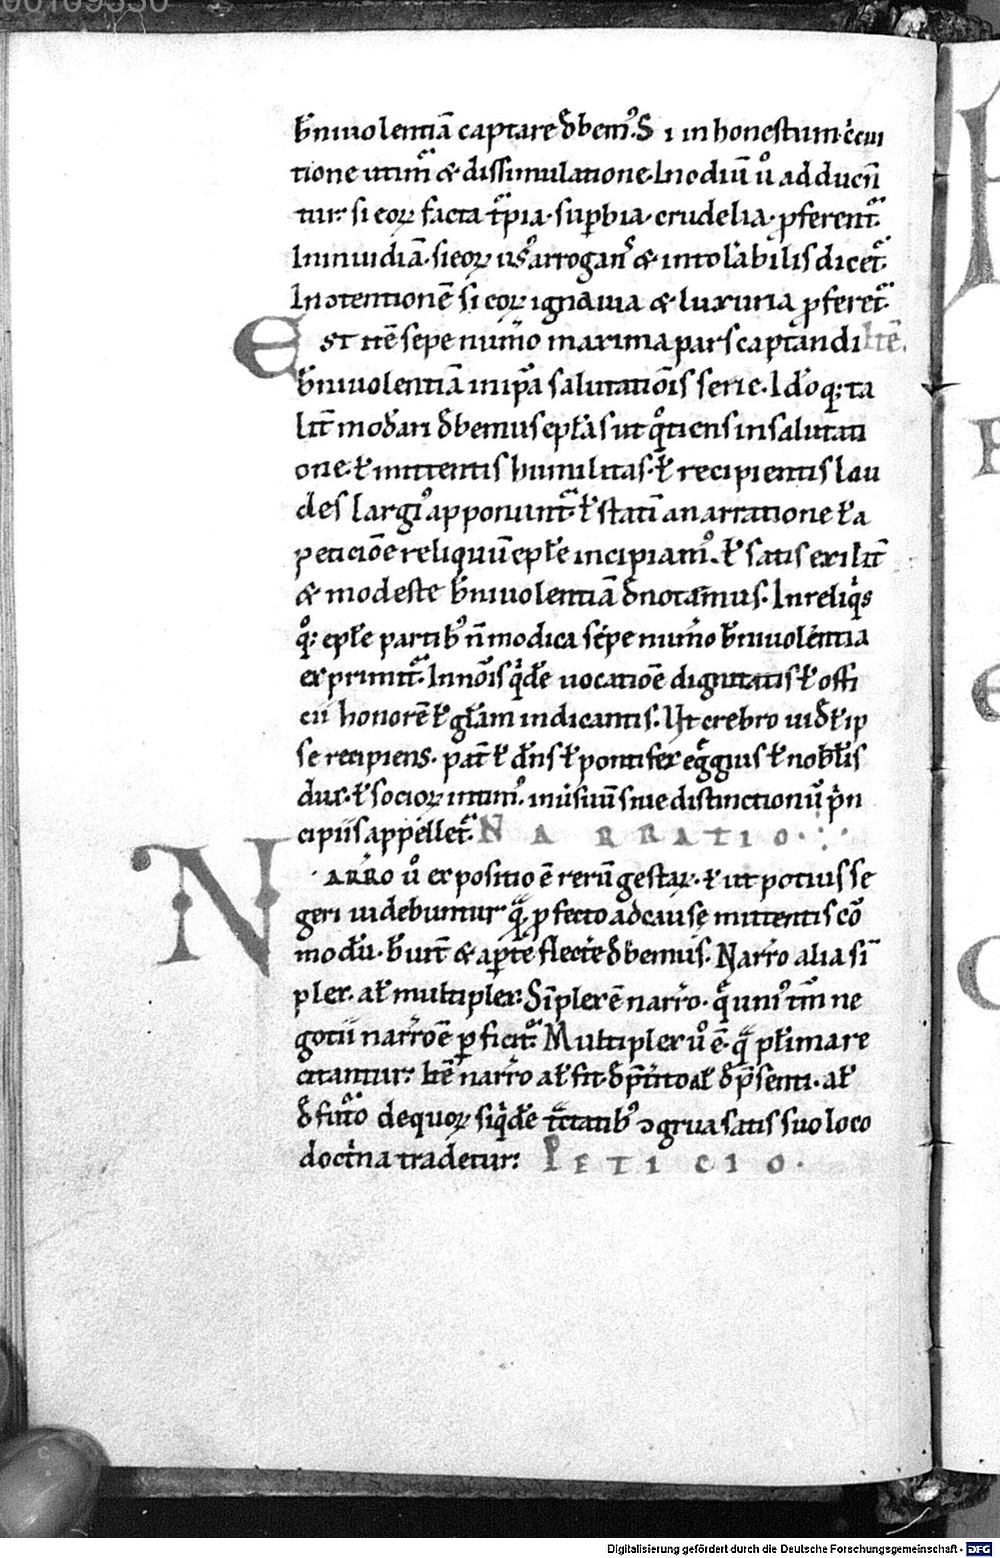 00109350
b̄niuolentiā captare d̄bem᷒. S i in honestum·c̄cui
tione utim᷑ & dissimulatione. In odiū ū adducen̄
tur· si eoꝝ facta t᷑pia· suꝑbia· crudelia· ꝓferent᷑.
In inuidiā· si eoꝝ uis᷒ arrogans̄ & intol̄abilis dicet᷑.
In ɔtentionē si eoꝝ ignauia & luxuria ꝓferet᷑.
Est itē sepe numͦo maxima pars captandi Itē.
b̄niuolentiā in ip̄a salutatiōis serie. Idͦoq; ta
lit̄ mod̄ari d̄bemus epł̄as ut q͛tiens in salutati
one· ł mittentis humilitas· ł recipientis lau
des largi᷒ apponunt᷑· ł statī a narratione ł a
peticiōe reliquū epł̄e incipiam᷒. ł satis exilit̄
& modeste b̄niuolentiā d̄notamus. In reliq͛s
q͛; epł̄e partib᷒ n̄ modica sępe numͦo b̄niuolentia
exprimit᷑. In nōis q͛d̄e uocatiōe dignitatis ł offi
cii honorē ł gł̄am indicantis. Ut crebro uid̄ł ip
se recipiens. pat̄ ł dn̄s ł pontifex egͣgius ł nobł̄is
dux· ł socioꝝ intim᷒. in uisiuū siue distinctionū p͛n
cipiis appellet᷑. NARRATIO.
NARRO ū expositio ē rerū gestaꝝ· ł ut potius se
geri uidebuntur q᷑ ꝓfecto ad causę mittentis cō
modū. b̄uit̄ & aꝑte flecte d̄bemus. Narͦro alia si
pler. ał multipler: Simpler ē narrͦo· q͛ uni᷒ tm̄ ne
gotii narrͦoē ꝑficit᷑. Multipler ū ē· q᷑ pł̄ima re
citantur: Itē narrͦo ał fit· d̄ p̄t͛ito ał d̄ p̄senti· ał
d̄ fut᷑o de quoꝝ siq͛d̄e t᷑ctatib᷒ ɔgrua satis suo loco
doct͛na tradetur: PETICIO.
Digitalisierung gefördert durch die Deutsche Forschungsgemeinschaft - DFG